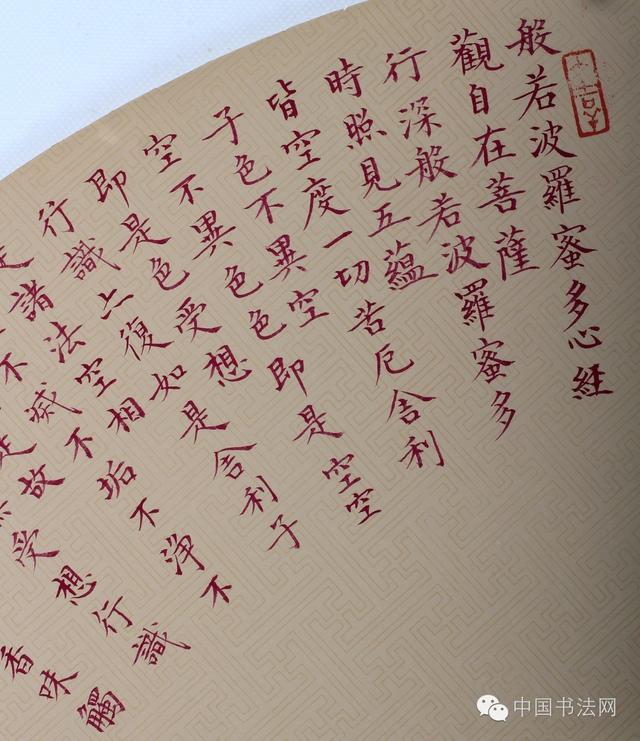 般若波羅蜜多心經
觀自在菩薩
行深般若波羅蜜多
時照見五蘊
皆空度一切苦厄舍利
子色不異空
空不異色色即是空空
即是色受想
行識亦復如是舍利子
是諸法空相
不滅不垢不淨不
是故
受想行識
香味觸
中国书法网